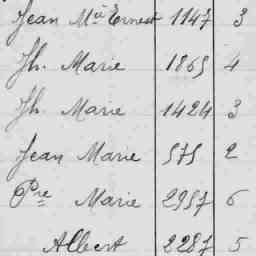 Jean Mie Ernest 1147 3
Jh. Marie 1865 4
Jh Marie 1424 3
Jean Marie 575 2
Pre Marie 2957 6
Albert 2287 5